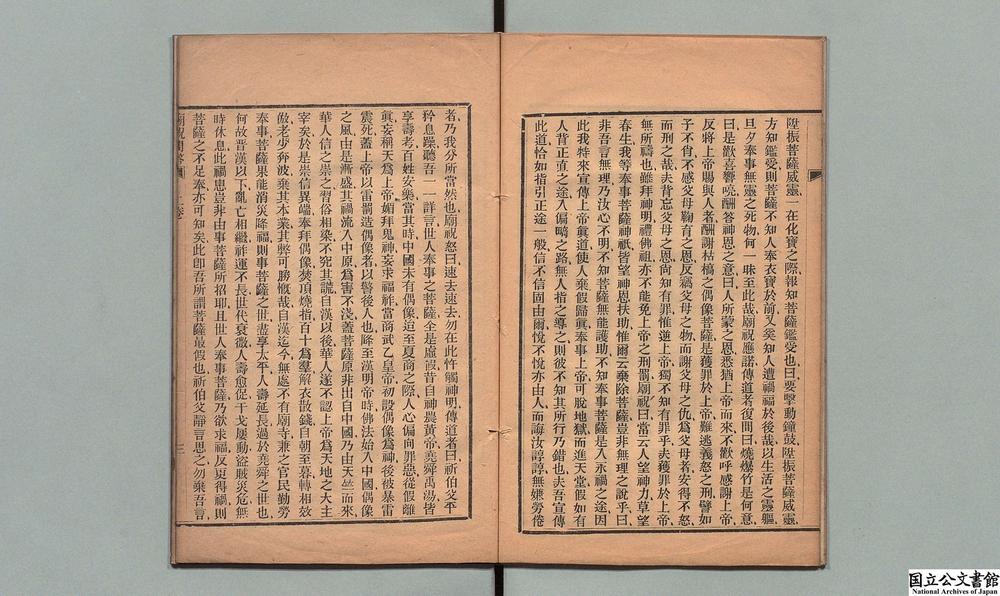 陞振菩薩威靈一在化寶之際報知菩薩鑑受也曰要擊動鐘鼓陞振菩薩威靈
方知鑑受則菩薩不知人奉衣寶於前又矣知人遭禍福於後哉以生活之靈軀
旦夕奉事無靈之死物何一昧至此哉廟祝應諾傳道者復問曰燒爆竹是何意
曰是歡喜響喨酬答神恩之意曰人所蒙之恩悉猶上帝而來不歡呼感謝上帝
反將上帝賜與人者酬謝枯槁之偶像菩薩是獲罪於上帝難逃義怒之刑譬如
子不肖不感父母鞠育之恩反竊父母之物而謝父母之仇為父母者安得不怒
而刑之哉夫背忘父母之恩尚知有罪惟逆上帝獨不知有罪乎夫獲罪於上帝
無所禱也雖拜神明禮佛祖亦不能免上帝之刑罰廟祝曰當云人望神力草望
春生我等奉事菩薩神祇皆望神恩扶助惟爾云棄除菩薩豈非無理之說乎曰
非吾言無理乃汝心不明不知菩薩無能護助不知奉事菩薩是入永禍之途因
此我特來宣傳上帝眞道使人棄假歸眞奉事上帝可脫地獄而進天堂假如有
人背正直之途入偏畸之路無人指之導之則彼不知其所行乃錯也夫吾宣傳
此道恰如指引正途一般信不信固由爾悅不悅亦由人而誨汝諄諄無嫌勞倦
者乃我分所當然也廟祝怒曰速去速去勿在此忤觸神明傳道者曰祈伯父平
矜息躁聽吾一一詳言世人奉事之菩薩全是虛假昔自神農黃帝堯舜禹湯皆
享壽考百姓安樂當其時中國未有偶像迨至夏商之際人心偏向罪惡從假離
眞妄稱天為上帝媚拜鬼神妄求福祚當商武乙皇帝初設偶像為神後被暴雷
震死蓋上帝以雷罰造偶像者以警後人也降至漢明帝時佛法始入中國偶像
之風由是漸盛其禍流入中原為害不淺蓋菩薩原非出自中國乃由天竺而來
華人信之崇之習俗相染不究其謊自漢以後華人遂不認上帝為天地之大主
宰矣於是崇信異端奉拜偶像焚項燒指百十為羣解衣散錢自朝至暮轉相效
倣老少奔波棄其本業其弊可勝慨哉自漢迄今無處不有廟寺兼之官民勤勞
奉事菩薩果能消災降福則事菩薩之世盡享太平人壽延長過於堯舜之世也
何故晋漢以下亂亡相繼祚運不長世代衰微人壽愈促干戈屢動盜賊災危無
時休息此禍患豈非由事菩薩所招耶且世人奉事菩薩乃欲求福反更得禍則
菩薩之不足奉亦可知矣此卽吾所謂菩薩最假也祈伯父靜言思之勿棄吾言
廟祝問答 上卷 三
国立公文書館
National Archives of Japan